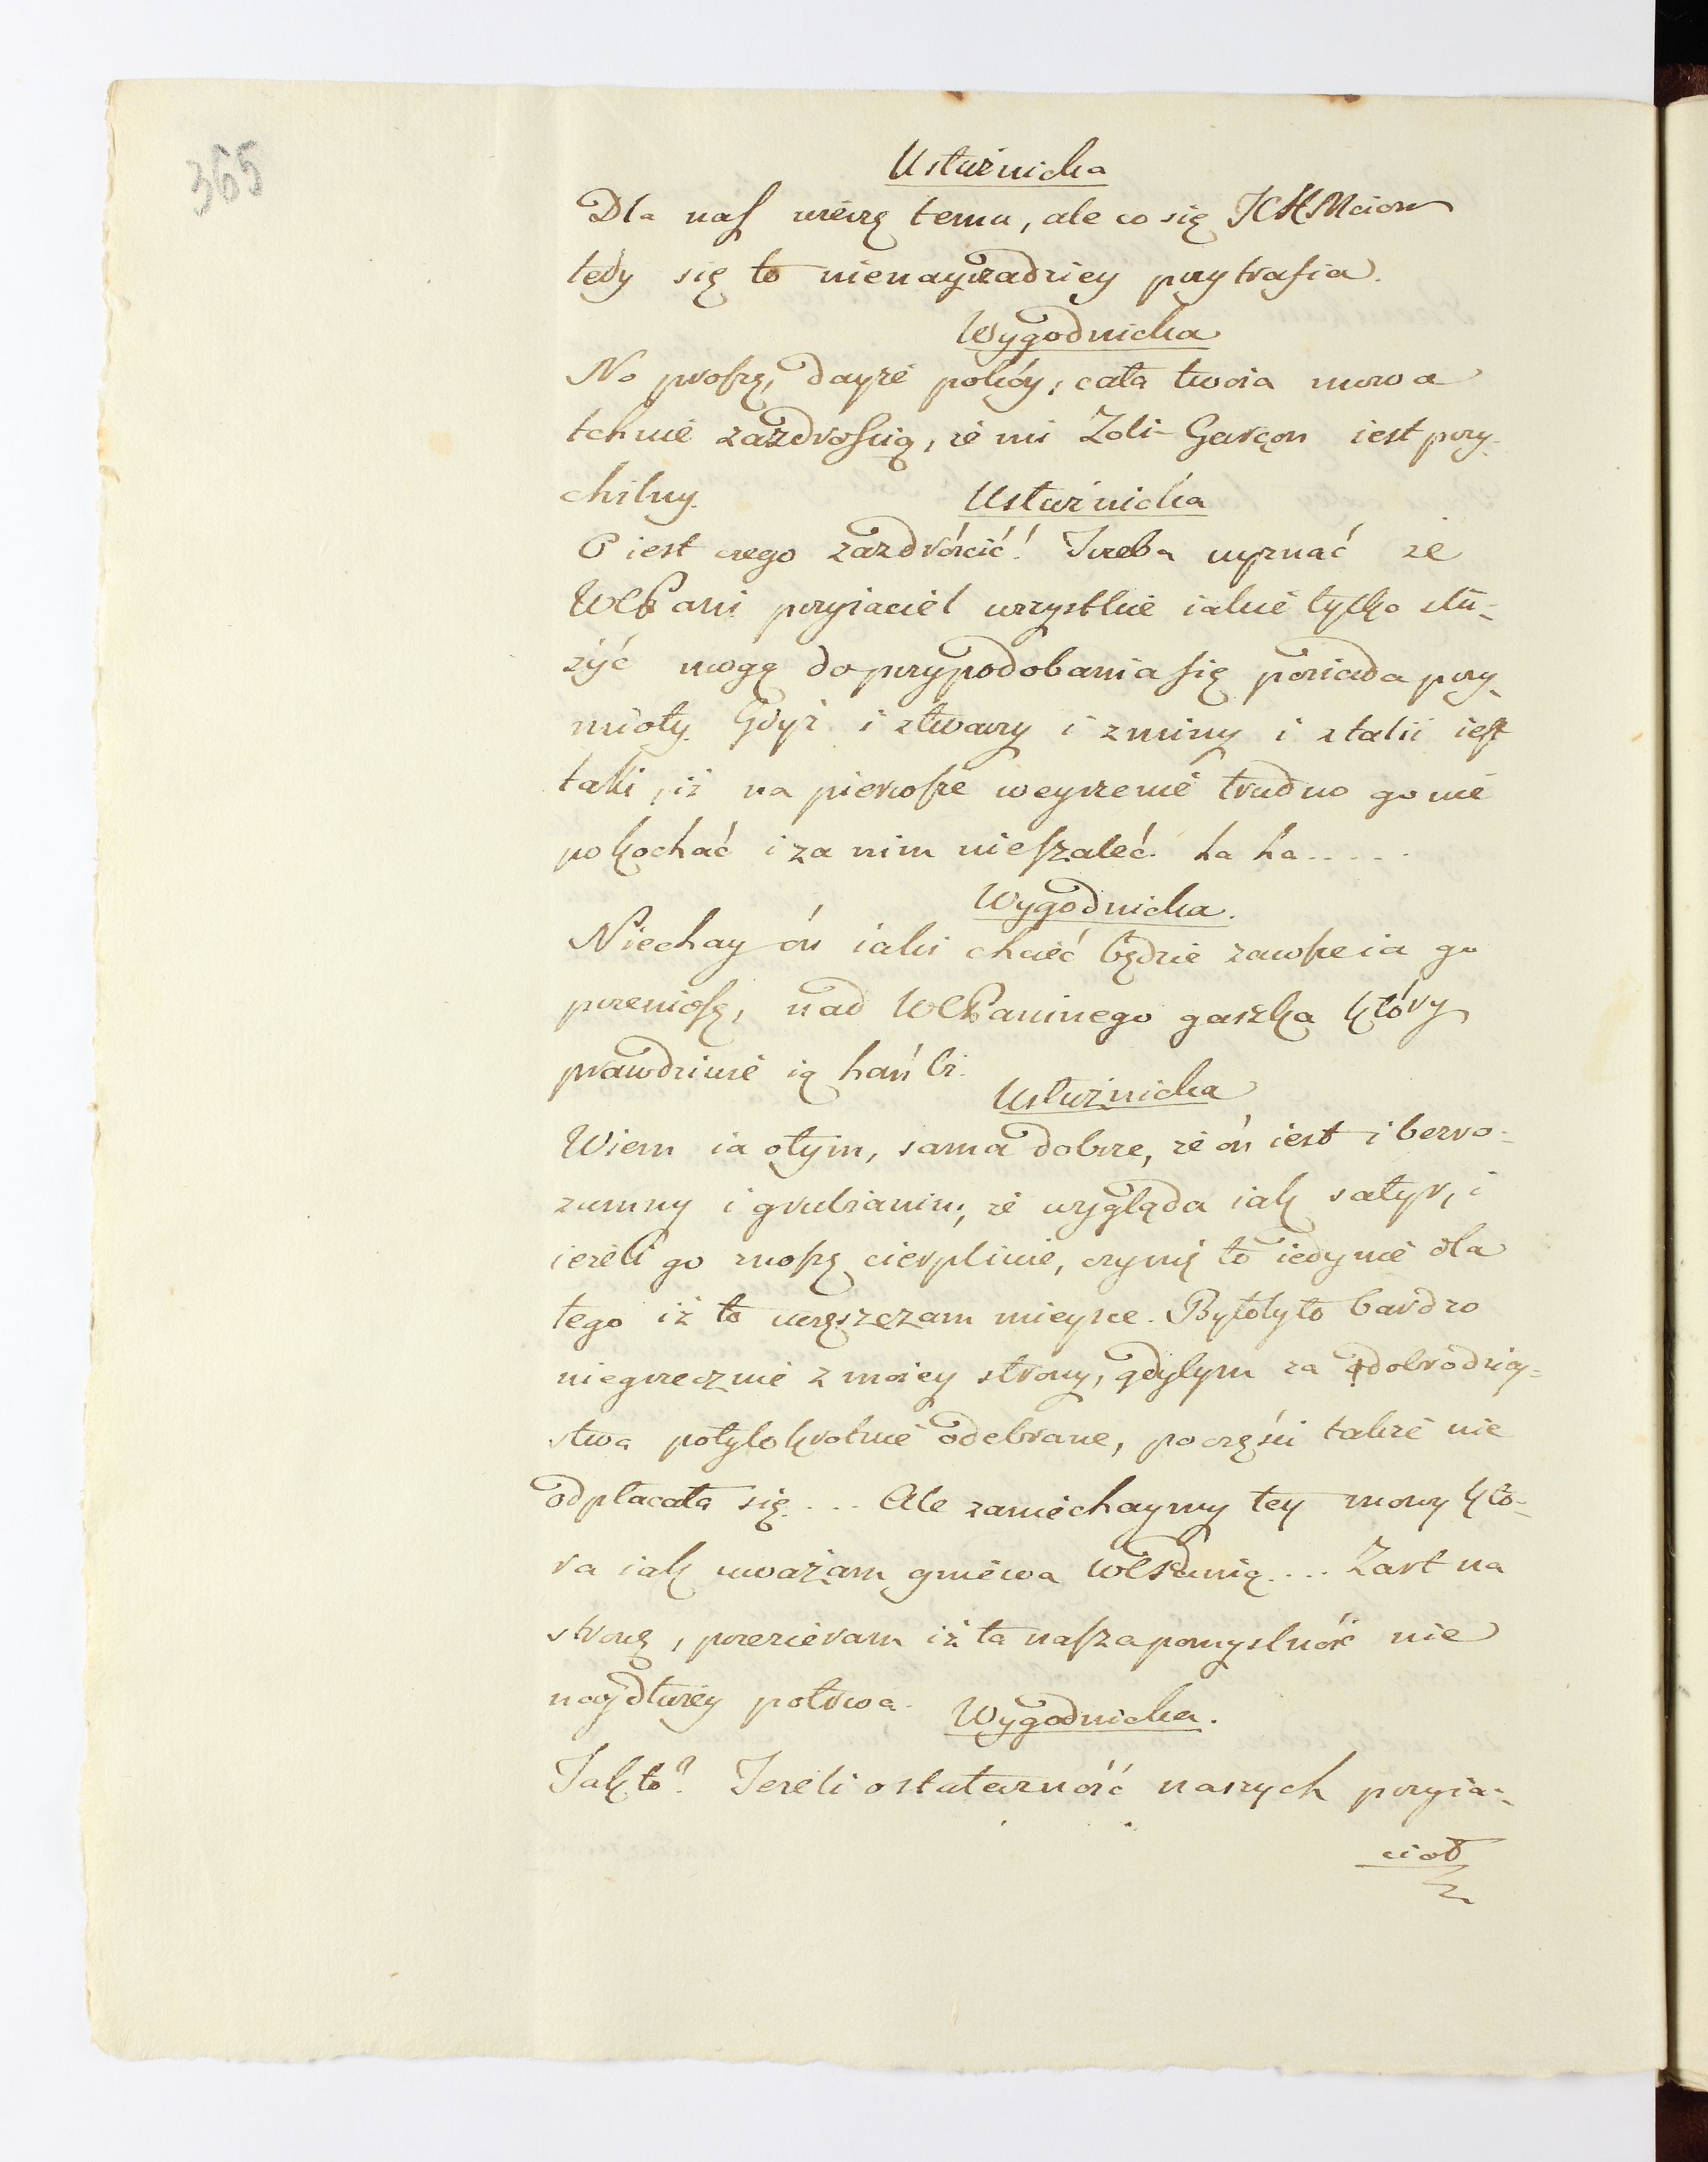 365
Usłużnicka
Dla nas wierzę temu, ale co się JCHMciom
tedy się to nienayrzadziey przytrafia.
Wygodnicka
No proszę, dayże pokóy, cała twoia mowa
tchnie zazdrością, że mi Zoli-Garçon iest przy-
chilny.
Usłużnicka
O iest czego zazdrościć! Trzeba wyznać że
WCPani przyiaciel wszystkie iakie tylko słu-
żyć mogą do przypodobania się posiada przy-
mioty. Gdyż i ztwarzy i zminy i ztalii iest
taki, iż na pierwsze weyrzenie trudno go nie
pokochać i za nim nieszaleć. ha ha.....
Wygodnicka.
Niechay ón iaki chcieć będzie zawsze ia go
przeniosę, nad WCPaninego gaszka który
prawdziwie ią hańbi.
Usłużnicka
Wiem ia otym, sama dobrze, że ón iest i bezro-
zumny i grubianin, że wygląda iak satyr, i
ieżeli go znoszę cierpliwie, czynię to iedynie dla
tego iż to uczęszczam mieysce. Byłoby to bardzo
niegrzecznie z moiey strony, gdybym za dobrodziey-
stwa potylokrotnie odebrane, poczęści także nie
odpłacała się... Ale zaniechaymy tey mowy któ-
ra iak uważam gniewa WCPanią... Żart na
stronę, przezieram iż ta nasza pomyslność nie
naydłużey potrwa.
Wygodnicka.
Jakto? Jeżeli ostateczność naszych przyia-
ciół